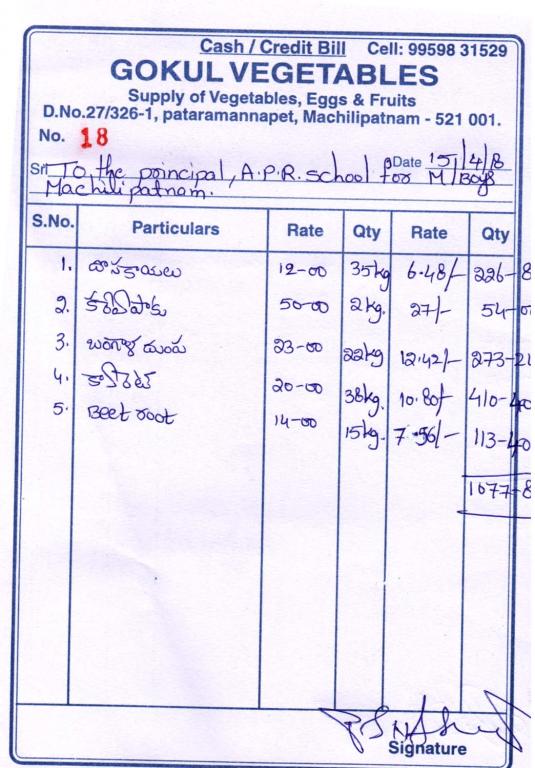 Cash / Credit Bill Cell: 99598 31529
GOKUL VEGETABLES
Supply of Vegetables, Eggs & Fruits
D.No.27/326-1, pataramannapet, Machilipatnam - 521 001.
No. 18
Sri To, the principal, A.P.R. school for M/Boys Date 15/4/8
Machilipatnam.
S.No. Particulars Rate Qty Rate Qty
1. దోసకాయలు 12-00 35kg 6.48/- 226-8
2. కరివేపాకు 50-00 2kg. 27/- 54-00
3. బంగాళ దుంప 23-00 22kg 12.42/- 273-2
4. కారెట్ 20-00 38kg. 10.80/- 410-40
5. Beet root 14-00 15kg. 7.56/- 113-40
1077-8
Signature